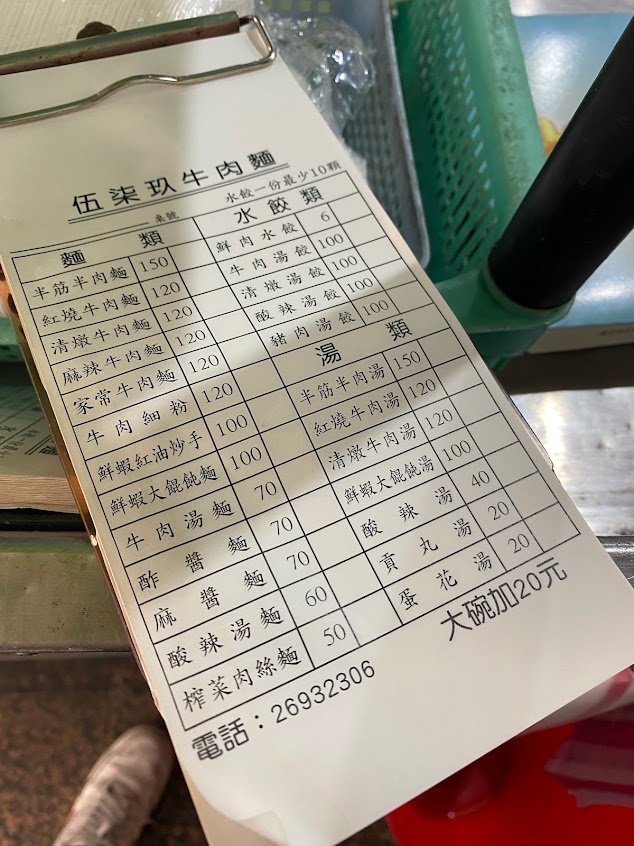 伍柒玖牛肉麵
桌號
水餃一份最少10顆
麵類
半筋半肉麵 150
紅燒牛肉麵 120
清燉牛肉麵 120
麻辣牛肉麵 120
家常牛肉麵 120
牛肉細粉 120
鮮蝦紅油炒手 100
鮮蝦大餛飩麵 100
牛肉湯麵 70
酢醬麵 70
麻醬麵 70
酸辣湯麵 60
榨菜肉絲麵 50
水餃類
鮮肉水餃 6
牛肉湯餃 100
清燉湯餃 100
酸辣湯餃 100
豬肉湯餃 100
湯類
半筋半肉湯 150
紅燒牛肉湯 120
清燉牛肉湯 120
鮮蝦大餛飩湯 100
酸辣湯 40
貢丸湯 20
蛋花湯 20
大碗加20元
電話：26932306